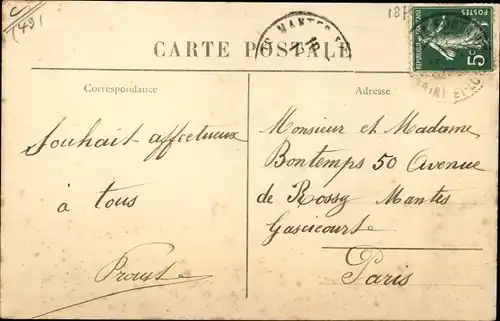 C
1491
187
MANTES
CARTE POSTALE
REPUBLIQUE FRANÇAISE
POSTES
5c
Correspondance
Adresse
Souhait affectueux
à tous
Proust
Monsieur et Madame
Bontemps 50 Avenue
de Rossy Mantes
Gascicourt
Paris